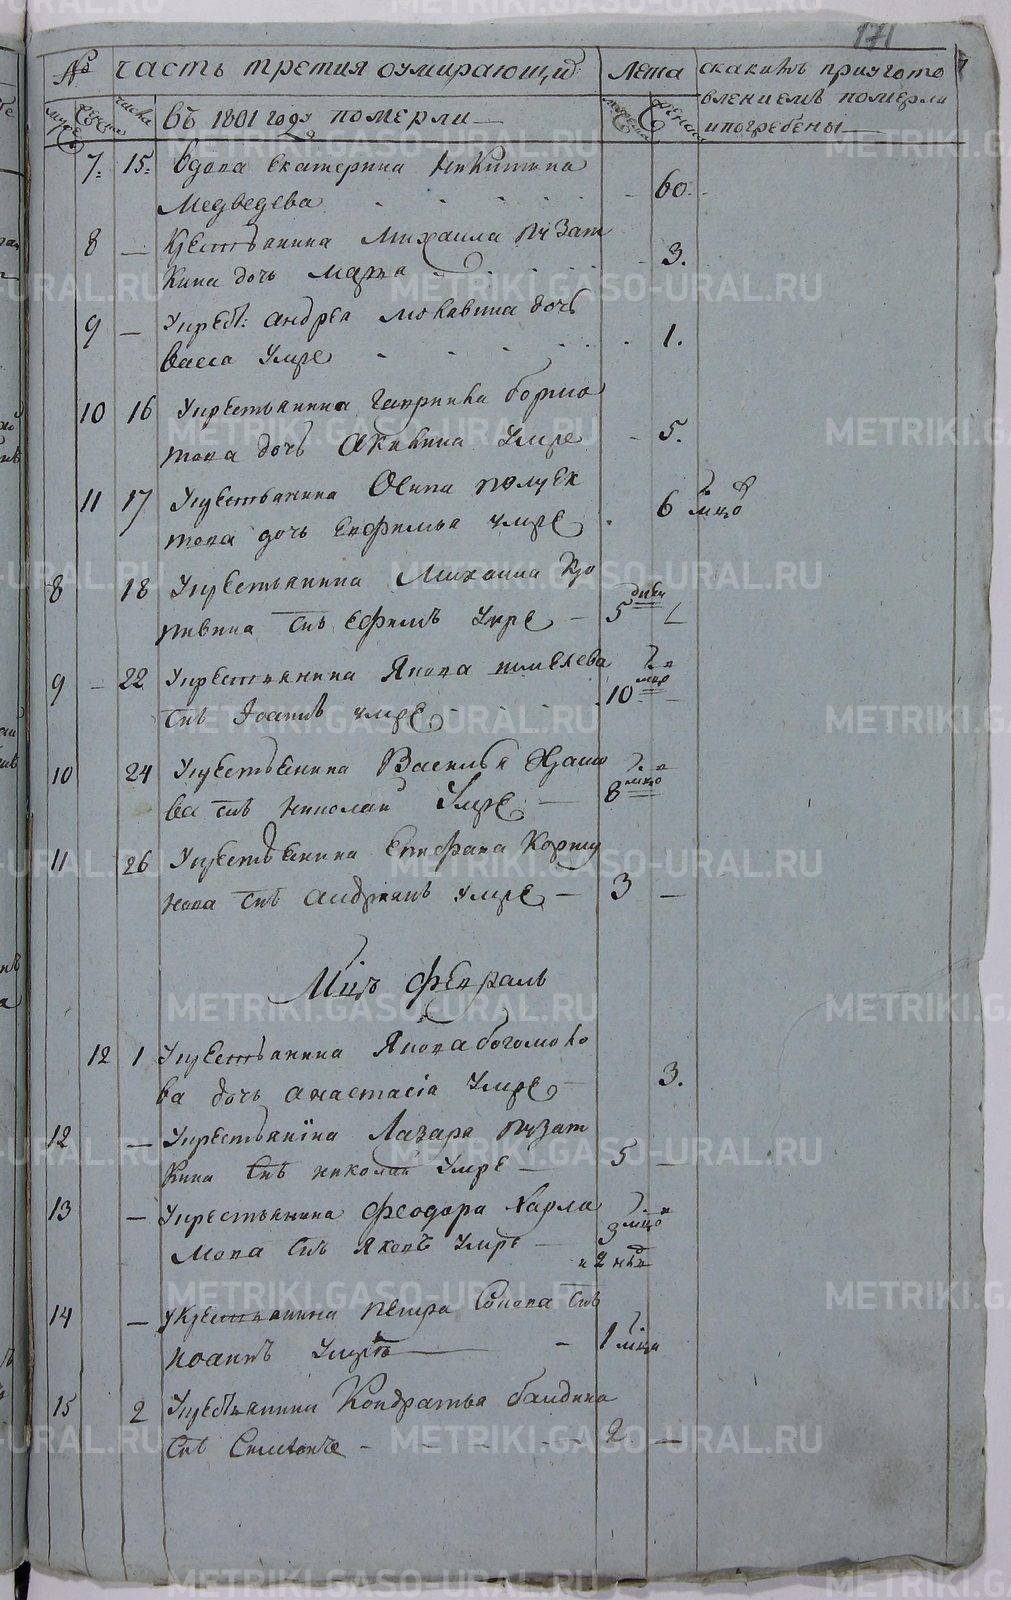 171
№ часть третия оумирающи Лета скакимъ приугото
влениемъ померли
ипогребены
въ 1801 году померли
7. 15. вдова Екатерина Никитина
Медведева 60.
8 — Крестьянина Михаила Пузат
кина дочь Марфа 3.
9 — У крест: Андрея дочь
васса умре 1.
10 16 У крестьянина Гаврила бормо
това дочь Акилина умре 5.
11 17 У крестьянина Осипа полуек
това дочь Евфимья умре 6 мцо
8 18 У крестьянина Михаила Кро
пивина снъ Ефимъ умре 5 дней
9 22 У крестьянина Якова
снъ Iоаннъ умре 10 мцо
10 24 У крестьянина Василья
ва снъ николай умре 8 мцо
11 26 У крестьянина Епифана Коршу
нова снъ андрианъ умре 3
Мцъ февраль
12 1 У крестьянина Якова богомоло
ва дочь анастасiа умре 3.
12 — У крестьянiна Лазаря Пузат
кина снъ николай умре 5
13 — У крестьянина Феодора Харла
мова снъ яковъ умре 3 мцо
и 2 нед
14 — у крестьянина петра Сопова снъ
иоаннъ умре 1 мцо
15 2 У крестьянина Кондратья балдина
снъ Симеонъ 2